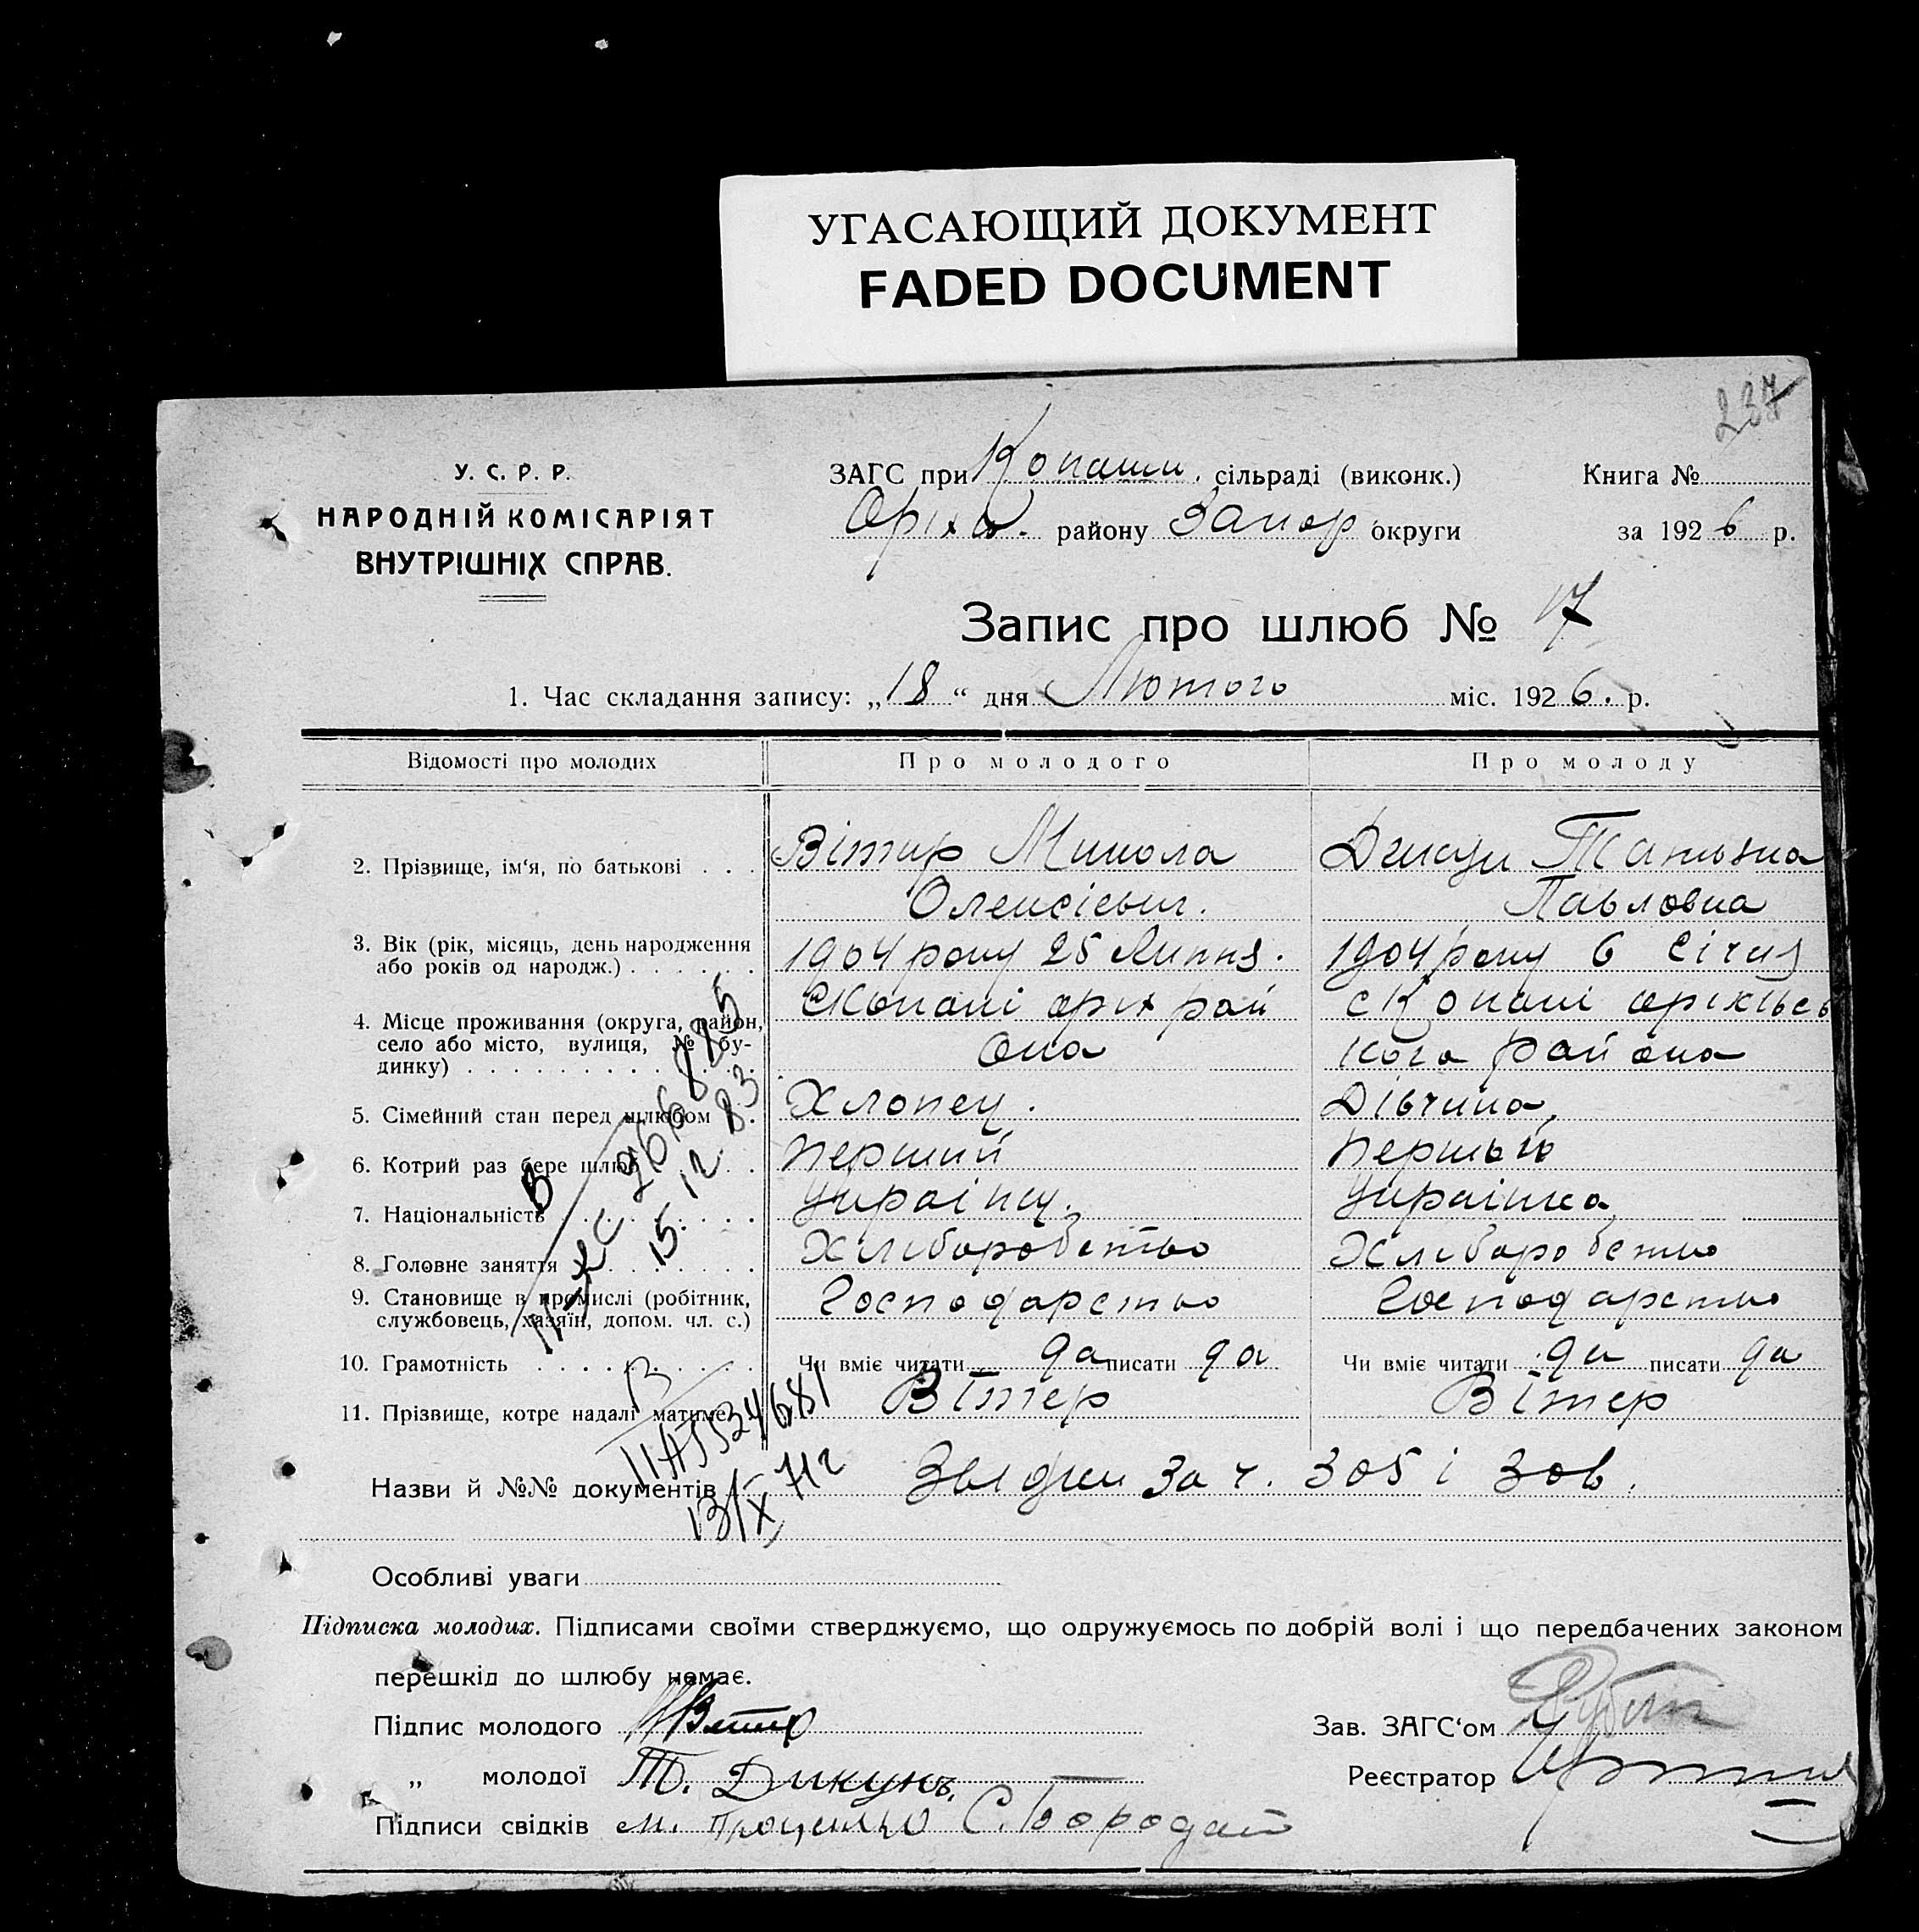 УГАСАЮЩИЙ ДОКУМЕНТ
FADED DOCUMENT
237
У. С. Р. Р.
НАРОДНІЙ КОМІСАРІЯТ
ВНУТРІШНІХ СПРАВ.
ЗАГС при Копани. сільраді (виконк.)
Оріхів. району Запор округи
Книга №
за 1926 р.
Запис про шлюб № 17
1. Час складання запису: „18“ дня Лютого міс. 1926. р.
Відомості про молодих
Про молодого
Про молоду
2. Прізвище, ім‘я, по батькові . . .
Вітир Микола
Олексієвич.
Дикун Татьяна
Павловна
3. Вік (рік, місяць, день народження
або років од народж.) . . . . . .
1904 року 25 Липня.
1904 року 6 Січня
4. Місце проживання (округа, район,
село або місто, вулиця, № бу-
динку) . . . . . . . . . . . . .
с Копані оріх рай
она
с Копані оріхівсь
кого района
5. Сімейний стан перед шлюбом .
Хлопец.
Дівчина,
6. Котрий раз бере шлюб . . .
перший
першый
7. Національність . . . . . . . .
Українец.
Українка
8. Головне заняття . . . . . . .
Хлиборобство
Хлиборобство
9. Становище в промислі (робітник,
службовець, хазяїн, допом. чл. с.)
Господарство
Господарство
10. Грамотність . . . . . . . .
Чи вміє читати да писати да
Чи вміє читати да писати да
11. Прізвище, котре надалі матиме
Вітер
Вітер
15. 12. 83
13/X 71г
Назви й №№ документів
за ч. 305 і 306.
Особливі уваги
Підписка молодих. Підписами своїми стверджуємо, що одружуємось по добрій волі і що передбачених законом
перешкід до шлюбу немає.
Підпис молодого
Зав. ЗАГС‘ом
„ молодої Т. Дикунъ.
Реєстратор
Підписи свідків м. Проценко С. Бородай